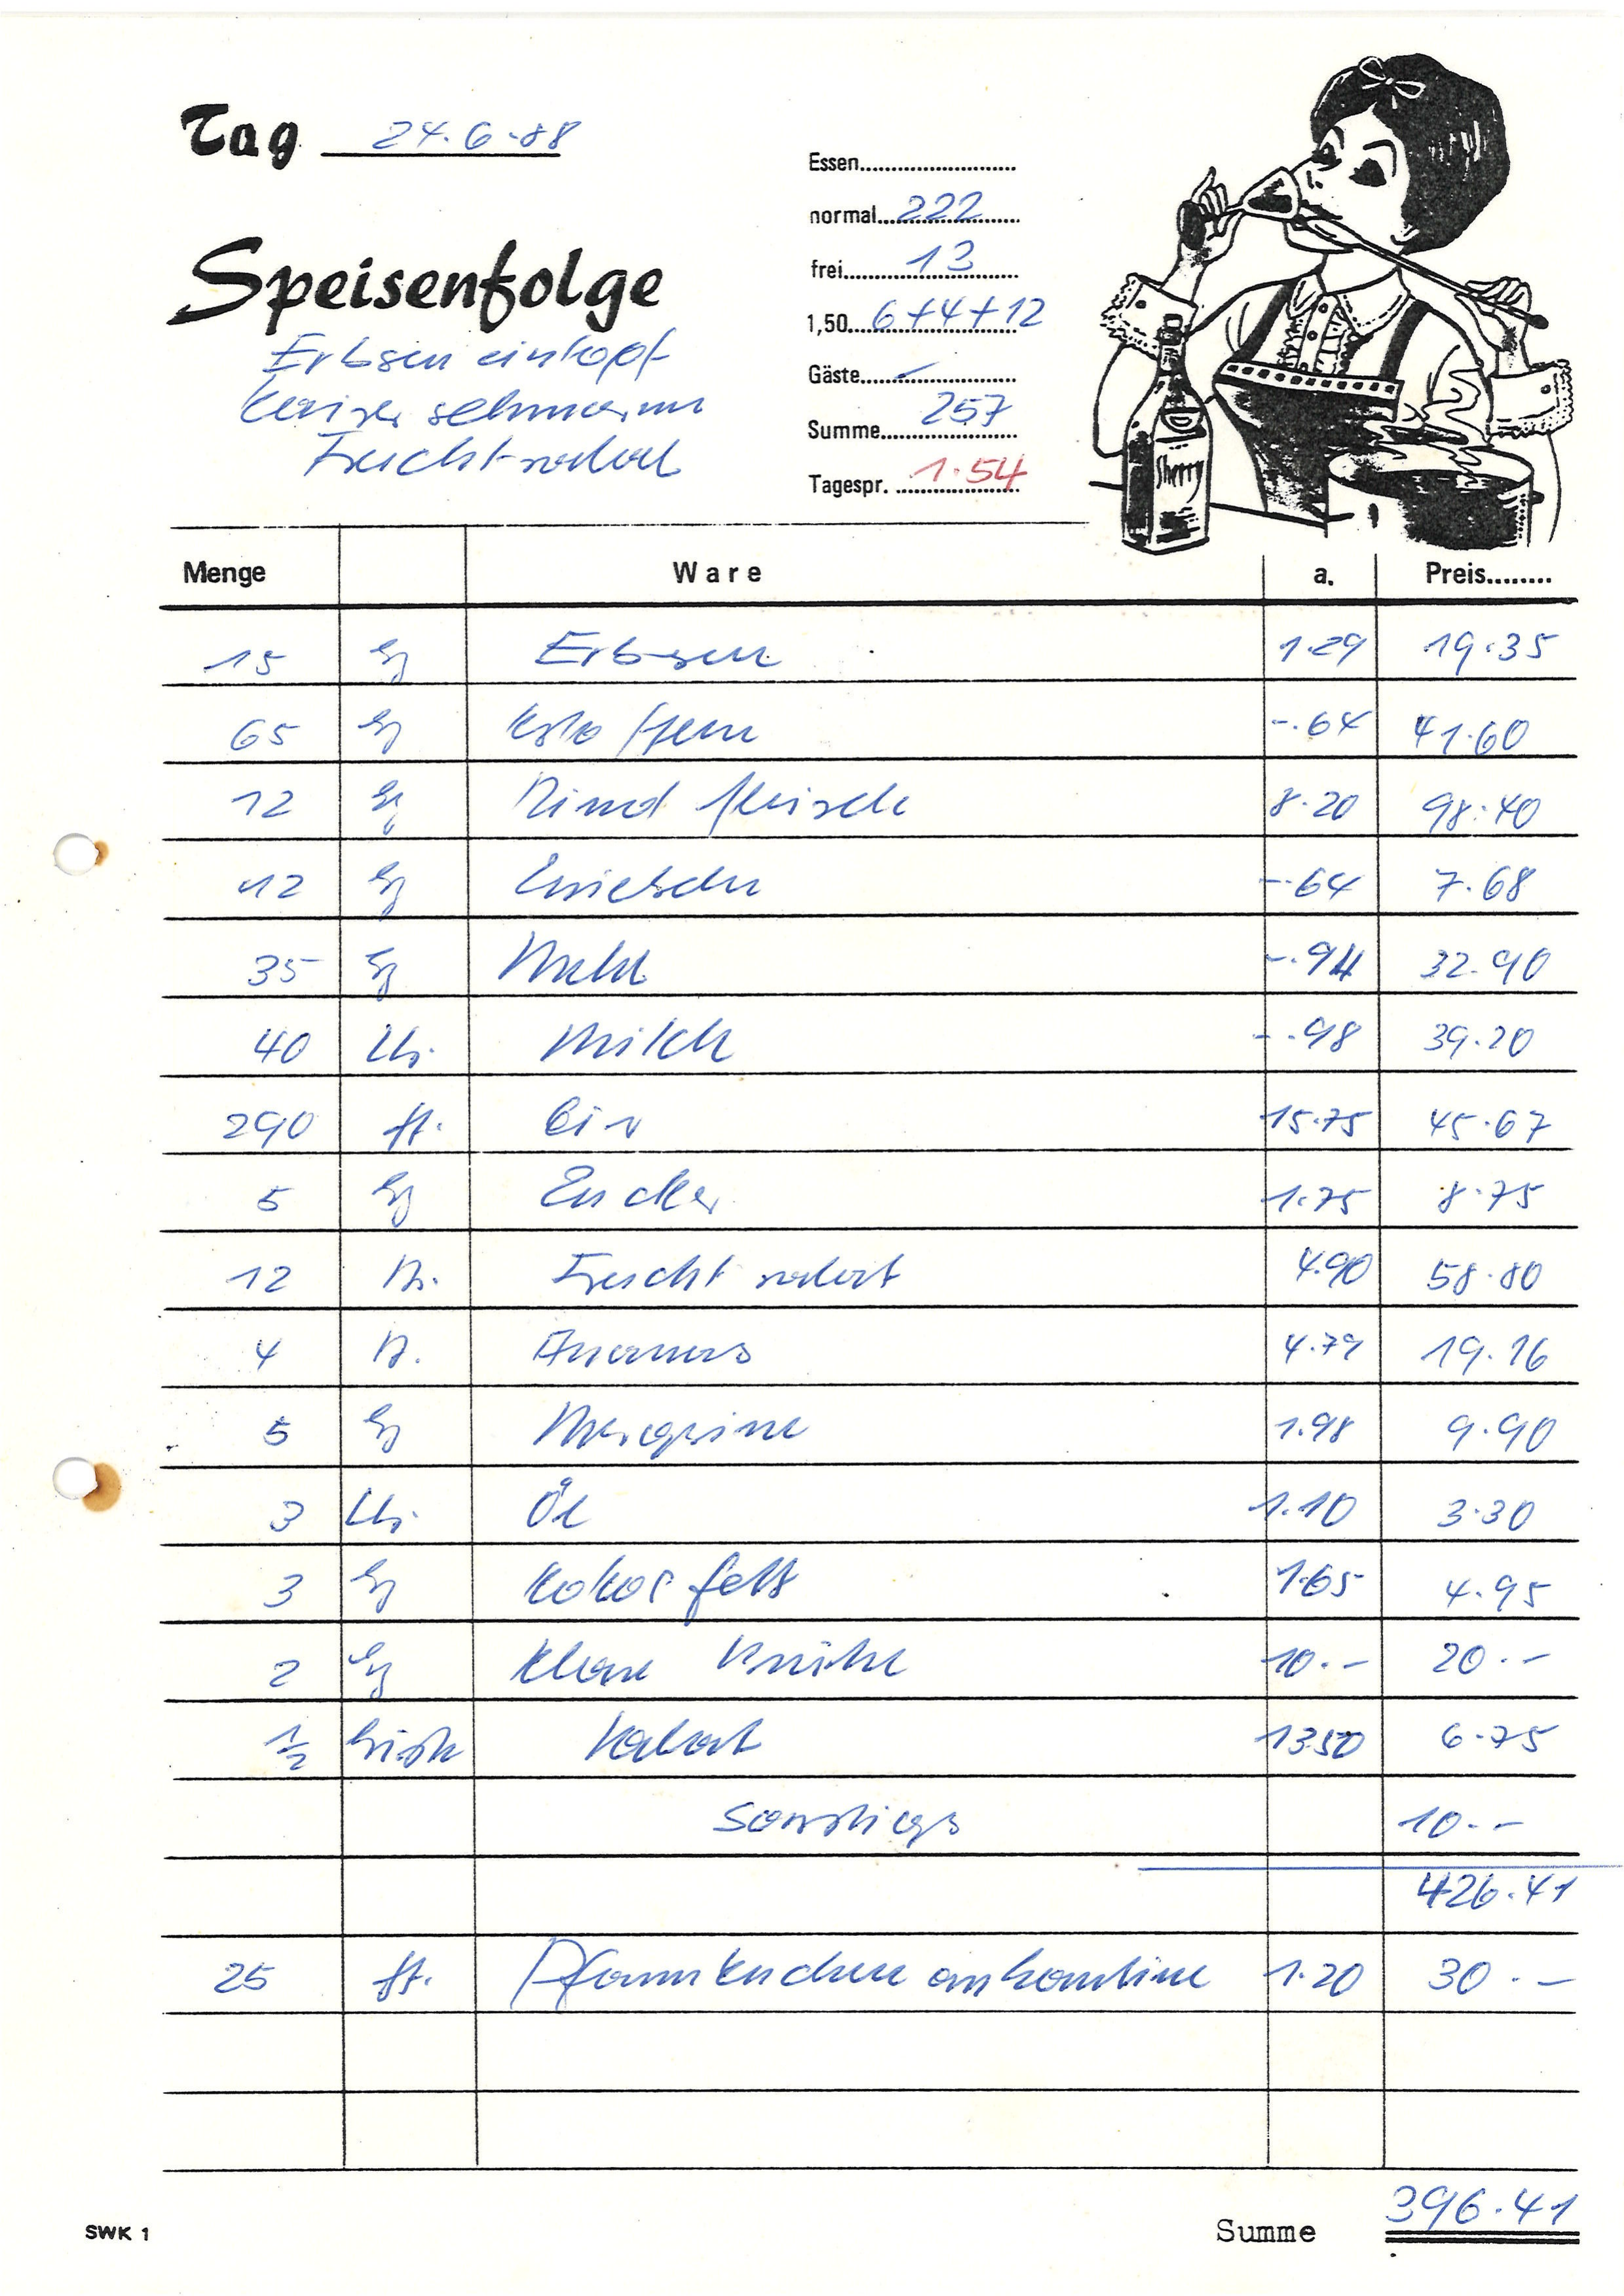 Tag 24.6.88
Essen
normal 222
frei 13
1,50 6+4+12
Gäste -
Summe 257
Tagespr. 1.54
Speisenfolge
Erbsen eintopf
Kaiser schmarrn
Frucht salat
Sherry
Menge Ware a. Preis
15 kg Erbsen 1.29 19.35
65 kg Kartoffeln -.64 41.60
12 kg Rind fleisch 8.20 98.40
12 kg Zwiebeln -.64 7.68
35 kg Mehl -.94 32.90
40 Ltr. Milch -.98 39.20
290 St. Eier 15.75 45.67
5 kg Zucker 1.75 8.75
12 D. Frucht salat 4.90 58.80
4 D. Ananas 4.79 19.16
5 kg Margarine 1.98 9.90
3 Ltr. Öl 1.10 3.30
3 kg Kokos fett 1.65 4.95
2 kg Klare Brühe 10.- 20.-
1/2 Salat 1350 6.75
Sonstiges 10.-
426.41
25 St. Pfannkuchen an Kantine 1.20 30.-
SWK 1
Summe 396.41